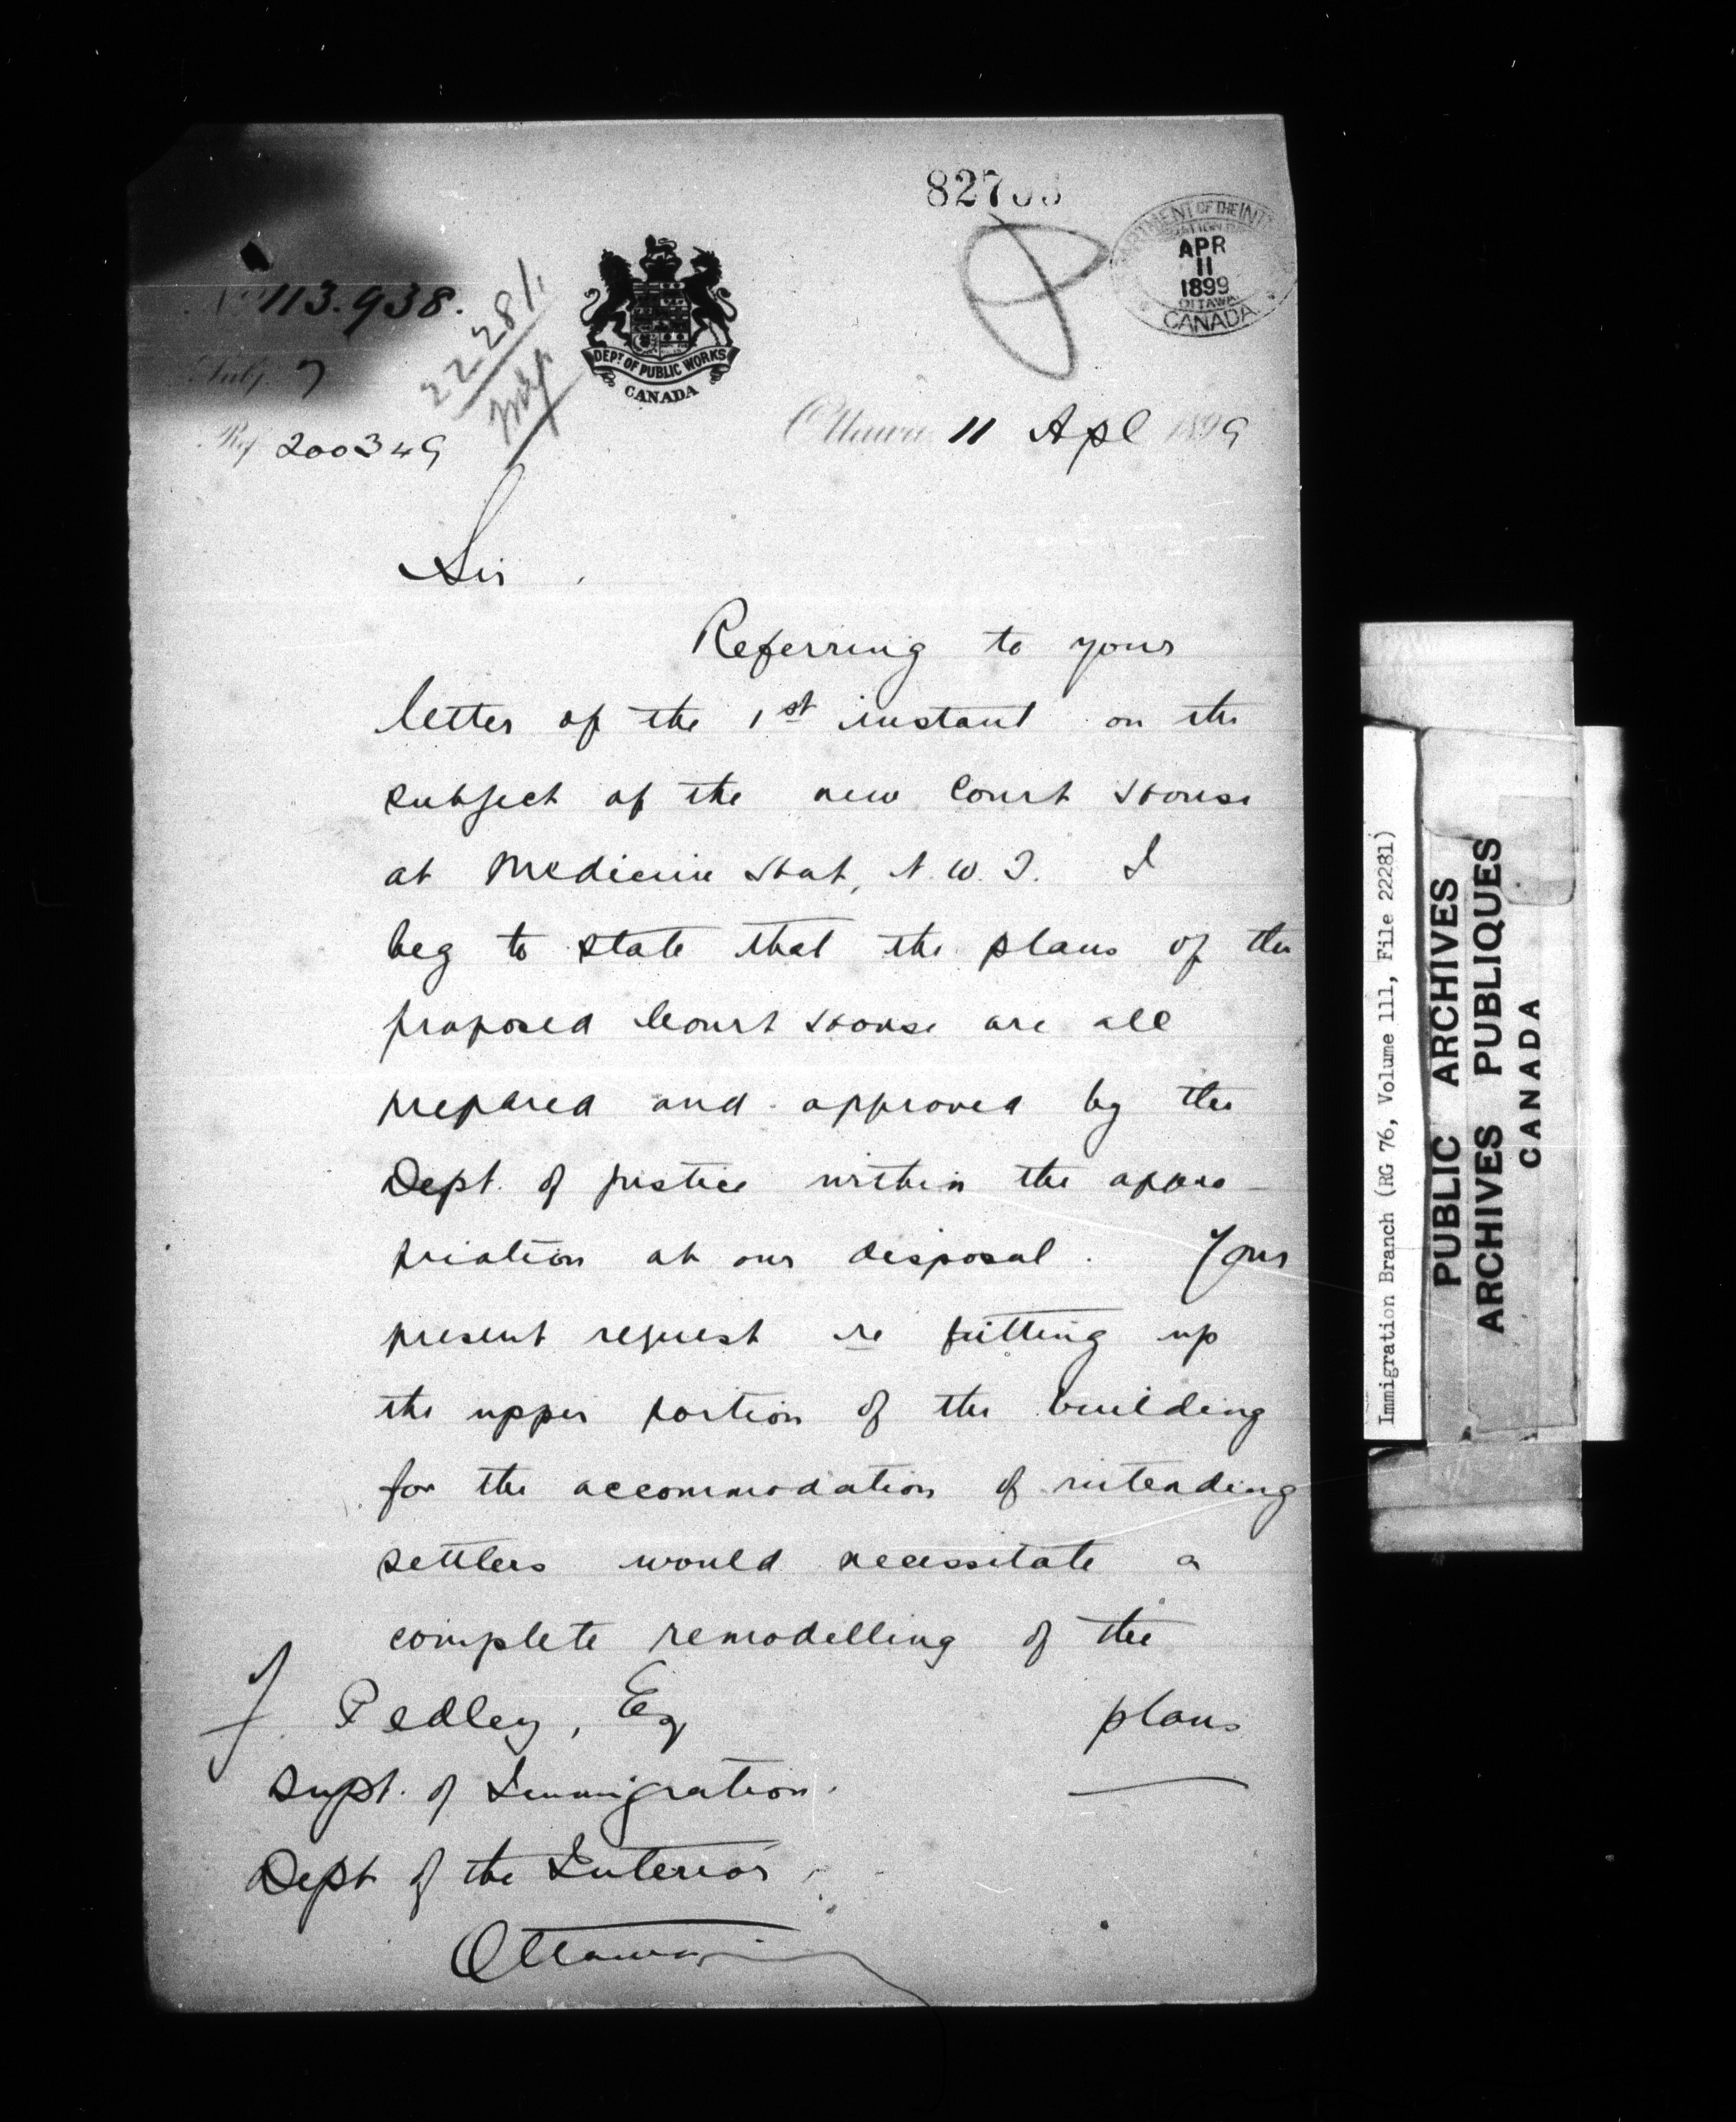 827
DEPARTMENT OF THE INT
APR
11
1899
OTTAWA
CANADA
No 113.938.
22281.
DEPT OF PUBLIC WORKS
CANADA
Subj. 7
Ref. 200349
Ottawa 11 Apl 1899
Sir,
Referring to your
letter of the 1st instant on the
subject of the new Court House
at Medicine Hat, N.W.T. I
beg to state that the plans of the
proposed Court House are all
prepared and approved by the
Dept. of Justice within the appro-
priation at our disposal. Your
present request re fitting up
the upper portion of the building
for the accommodation of intending
settlers would necessitate a
complete remodelling of the
plans
F. Pedley, Esq
Supt. of Immigration.
Dept of the Interior
Ottawa
Immigration Branch (RG 76, Volume 111, File 22281)
PUBLIC ARCHIVES
ARCHIVES PUBLIQUES
CANADA